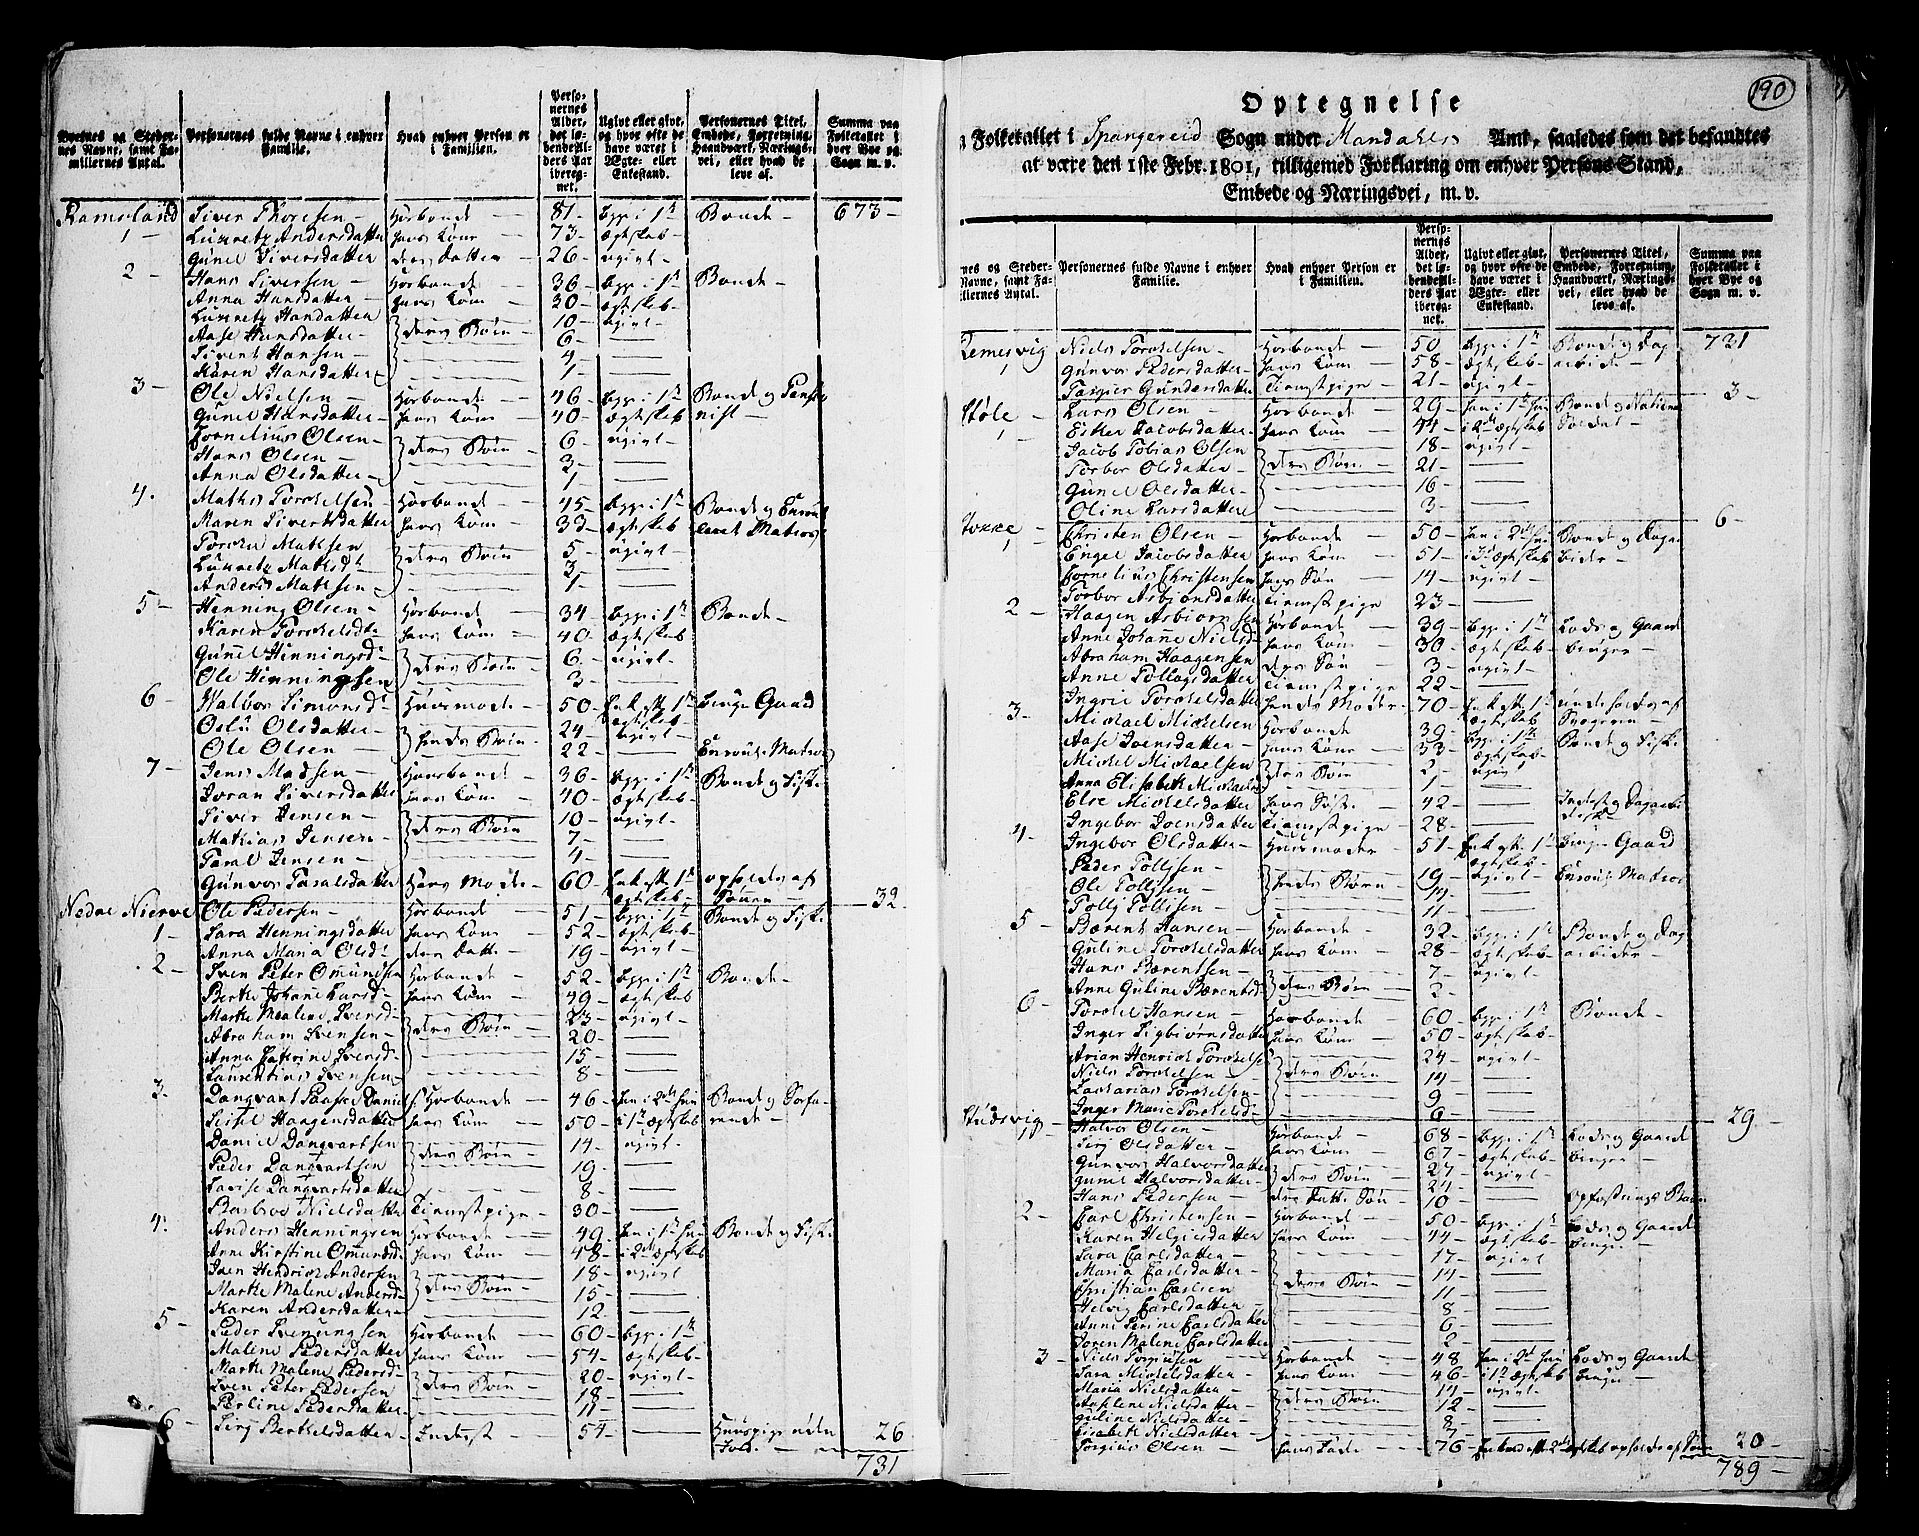 Byernes og Steder-
nes Navne, samt Fa-
millernes Antal.
Personernes fulde Navne i enhver
Familie.
Hvad enhver Person er
i Familien.
Perso-
nernes
Alder,
det lø-
bende Al-
ders Aar
iberegnet.
Ugivt eller givt,
og hvor ofte de
have været i
Ægte- eller
Enkestand.
Personernes Titel,
Embede, Forretning,
Haandværk, Nærings-
vei, eller hvad de
leve af.
Summa paa
Folketallet i
hver Bye og
Sogn m. v.
Ramsland Siver Thorsen - Hosbonde - 81 - Begge i 1te Bonde - 673 -
1 - Andersdatter hans Kone 73 - Ægteskab -
Gunel Siversdatter deres Datter - 26 - ugivt -
2 - Hans Siversen - Hosbonde - 36 - Begge i 1te Bonde -
Anna Hansdatter - hans Kone - 30 - Ægteskab -
Hansdatter 10 - ugivt -
Aase Hansdatter - deres Børn - 6 -
Sivert Hansen - 4 -
Karen Hansdatter 1 -
3 - Ole Nielsen - Hosbonde - 46 - Begge i 1te Bonde og
Gunel Hansdatter - hans Kone - 40 - Ægteskab
Cornelius Olsen - 6 - ugivt -
Hans Olsen - deres Børn - 3 -
Anna Olsdatter - 1 -
4. Mathis Torkelsen Hosbonde - 45 - Begge i 1te Bonde og
Maren Sivertsdatter hans Kone - 33 - Ægteskab Matros
Mathsen 5 - ugivt -
deres Børn - 3 -
Anders Mathsen - 1 -
5 - Henning Olsen - Hosbonde - 34 - Begge i 1te Bonde -
Karen Torkelsd: hans Kone - 40 - Ægteskab
Gunel Henningsd: deres Børn - 6 - ugivt -
Ole Henningsen 3 -
6 - Walbor Simonsd: Huusmoder - 50 - Enke efter 1te bruger Gaard
Olsdatter - hendes Børn - 24 - ugivt -
Ole Olsen - 22 - Matros
7 - Jens Madsen - Hosbonde - 36 - Begge i 1te Bonde og Fisker
Joran Siversdatter hans Kone - 40 - Ægteskab -
Siver Jensen - 10 - ugivt -
Mathias Jensen - deres Børn - 7 -
Taral Jensen - 4 -
Gunvor Taralsdatter hans Moder - 60 - Enke efter 1te opholdes af
Ægteskab - Sønnen - 32
Nedre Nierve Ole Pedersen - Hosbonde - 51 - Begge i 1te Bonde og Fisker
1 - Sara Henningsdatter hans Kone - 52 - Ægteskab -
Anna Maria Olsd: deres Datter - 19 - ugivt -
2 - Sven Peter Omundsen Hosbonde - 52 - Begge i 1te Bonde -
Berthe Johane Larsd: hans Kone - 49 - Ægteskab
Marthe Malene Svensd: 23 - ugivt -
Abraham Svensen - deres Børn - 20 -
Anna Catrine Svensd: 15 -
Laurentius Svensen 8 -
3. Hosbonde - 46 - han i 2det hun Bonde og
Haagensdatter hans Kone - 50 - i 1te Ægteskab
Daniel Danqvartsen 14 - ugivt -
Peder Danqvartsen deres Børn - 19 -
Lovise Danqvartsdatter 8 -
Nielsdatter Tienestpige - 30 -
4. Anders Henningsen Hosbonde - 49 - han i 1te hun Bonde og Fisker
Anne Kirstine Omundsd: hans Kone - 48 - i 2det Ægteskab
Sven Hendrick Andersen 18 - ugivt
Marthe Malene Andersd: deres Børn - 15 -
Karen Andersdatter - 12 -
5 - Peder Svenungsen Hosbonde - 60 - Begge i 1te
Malene Pedersdatter hans Kone - 54 - Ægteskab -
Marthe Malene Pedersd: 20 - ugivt -
Sven Peter Pedersen deres Børn - 18 -
Pedersdatter - 11 -
6 - Siri Bertelsdatter - Inderst - 54 - Huuspige uden 26
731
190
Optegnelse
Folketallet i Spangereid Sogn under Mandahls Amt, saaledes som det befandtes
at være den 1ste Febr. 1801, tilligemed Forklaring om enhver Persons Stand,
Embede og Næringsvei, m. v.
nes og Steder-
Navne, samt Fa-
illernes Antal.
Personernes fulde Navne i enhver
Familie.
Hvad enhver Person er
i Familien.
Perso-
nernes
Alder,
det lø-
bende Al-
ders Aar
iberegnet.
Ugivt eller givt,
og hvor ofte de
have været i
Ægte- eller
Enkestand.
Personernes Titel,
Embede, Forretning,
Haandværk, Nærings-
vei, eller hvad de
leve af.
Summa paa
Folketallet i
hver Bye og
Sogn m. v.
Remesvig Niels Torkelsen - Hosbonde - 50 - Begge i 1te Bonde og Dag 731
1 Gunvor Pedersdatter - hans Kone - 58 - Ægteskab - arbeider
Gundersdatter Tienestpige - 21 - ugivt - 3 -
Støle - Lars Olsen - Hosbonde - 29 - han i 1te hun Bonde og National
1 Ester Jacobsdatter - hans Kone - 44 - i 2det Ægteskab Soldat -
Jacob Tobias Olsen 18 - ugivt -
Torbor Olsdatter - deres Børn - 21 -
Gunel Olsdatter - 16 -
Oline Larsdatter 3 - 6 -
Christen Olsen - Hosbonde - 50 - han i 2det hun Bonde og Dagar
1 Engel Jacobsdatter hans Kone - 51 - Ægteskab beider -
Cornelius Christensen hans Søn - 14 - ugivt -
Torbor Asbiønsdatter Tienestpige 23 -
2 - Haagen Asbiørnsen Hosbonde - 39 - Begge i 1te Lods og Gaard
Anne Johanne Nielsd: hans Kone - 30 - Ægteskab - bruger -
Abraham Haagensen deres Søn - 3 - ugivt -
Anne Tollagsdatter Tienestpige 22 -
Ingri Torkelsdatter hendes Moder - 70 - Enke efter 1te underholdes af
3 - Michael Mickelsen Hosbonde 39 - Begge i 1te
Aase Joensdatter - hans Kone - 33 - Ægteskab - Bonde og Fisker
Michel Michaelsen deres Børn 3 - ugivt
Anna Elisabeth Michaelsd: 1 -
Else Mickelsdatter hans Søster - 42 -
Ingebor Joensdatter Tienestpige 28 -
4 - Ingebor Olsdatter - Huusmoder - 51 - Enke efter 1te bruger Gaard
Peder Tollisen - 19 - ugivt - Matros
Ole Tollisen - hendes Børn - 14 -
Tolly Tollisen - 11 -
5 - Bærent Hansen - Hosbonde - 32 - Begge i 1te Bonde og Dag
Guline Torkelsdatter hans Kone - 28 - Ægteskab - arbeider -
Hans Bærentsen - 7 - ugivt -
Anne Guline Bærentsd: deres Børn - 2 -
6 - Torkel Hansen - Hosbonde - 60 - Begge i 1te Bonde -
Inger Sigbiørnsdatter hans Kone - 50 - Ægteskab -
Arian Henrick Torkelsen 24 - ugivt -
Niels Torkelsen - deres Børn - 14 -
Zacharias Torkelsen - 9 -
Inger Marie Torkelsd: 6 - 29 -
Studsvig Halvor Olsen - Hosbonde - 68 - Begge i 1te Lods og Gaard
1 Siri Olsdatter - hans Kone - 67 - Ægteskab - bruger -
Gunvor Halvorsdatter deres Børn - 27 - ugivt -
Gunil Halvorsdatter - 24 -
Hans Pedersen - deres Datters Søn - 10 - Opfostrings Barn
2 - Carl Christensen - Hosbonde - 50 - Begge i 1te Lods og Gaard
Karen Helgiesdatter hans Kone - 44 - Ægteskab bruger -
Sara Carlsdatter - 17 - ugivt
Maria Carlsdatter - 14 -
Christian Carlsen deres Børn - 11 -
Helvig Carlsdatter 8 -
Anne Serine Carlsdatter 6 -
Joren Malene Carlsdatter 2 -
3 - Niels Torgiusen - Hosbonde - 48 han i 2det hun Lods og Gaard
Sara Mickelsdatter - hans Kone - 46 - i 1te Ægteskab bruger -
Maria Nielsdatter - 14 - ugivt -
Nielsdatter - deres Børn - 12 -
Guline Nielsdatter - 8 -
Elisabeth Nielsdatter - 7 -
Torgius Olsen - hans Fader - 76 - opholdes af Sønnen 20 -
789 -